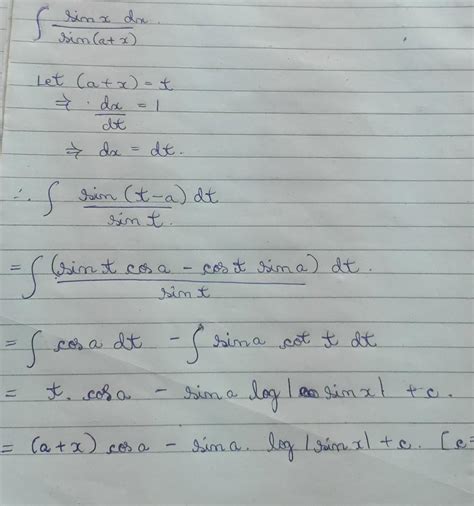 ∫ sin x dx / sin(a+x)
Let (a+x) = t
⇒ dx/dt = 1
⇒ dx = dt.
∴ ∫ sin (t-a) dt / sin t.
= ∫ (sin t cos a - cos t sin a) dt. / sin t
= ∫ cos a dt - ∫ sin a cot t dt
= t. cos a - sin a log | sin x| + c.
= (a+x) cos a - sin a. log |sin x| + c. [c=